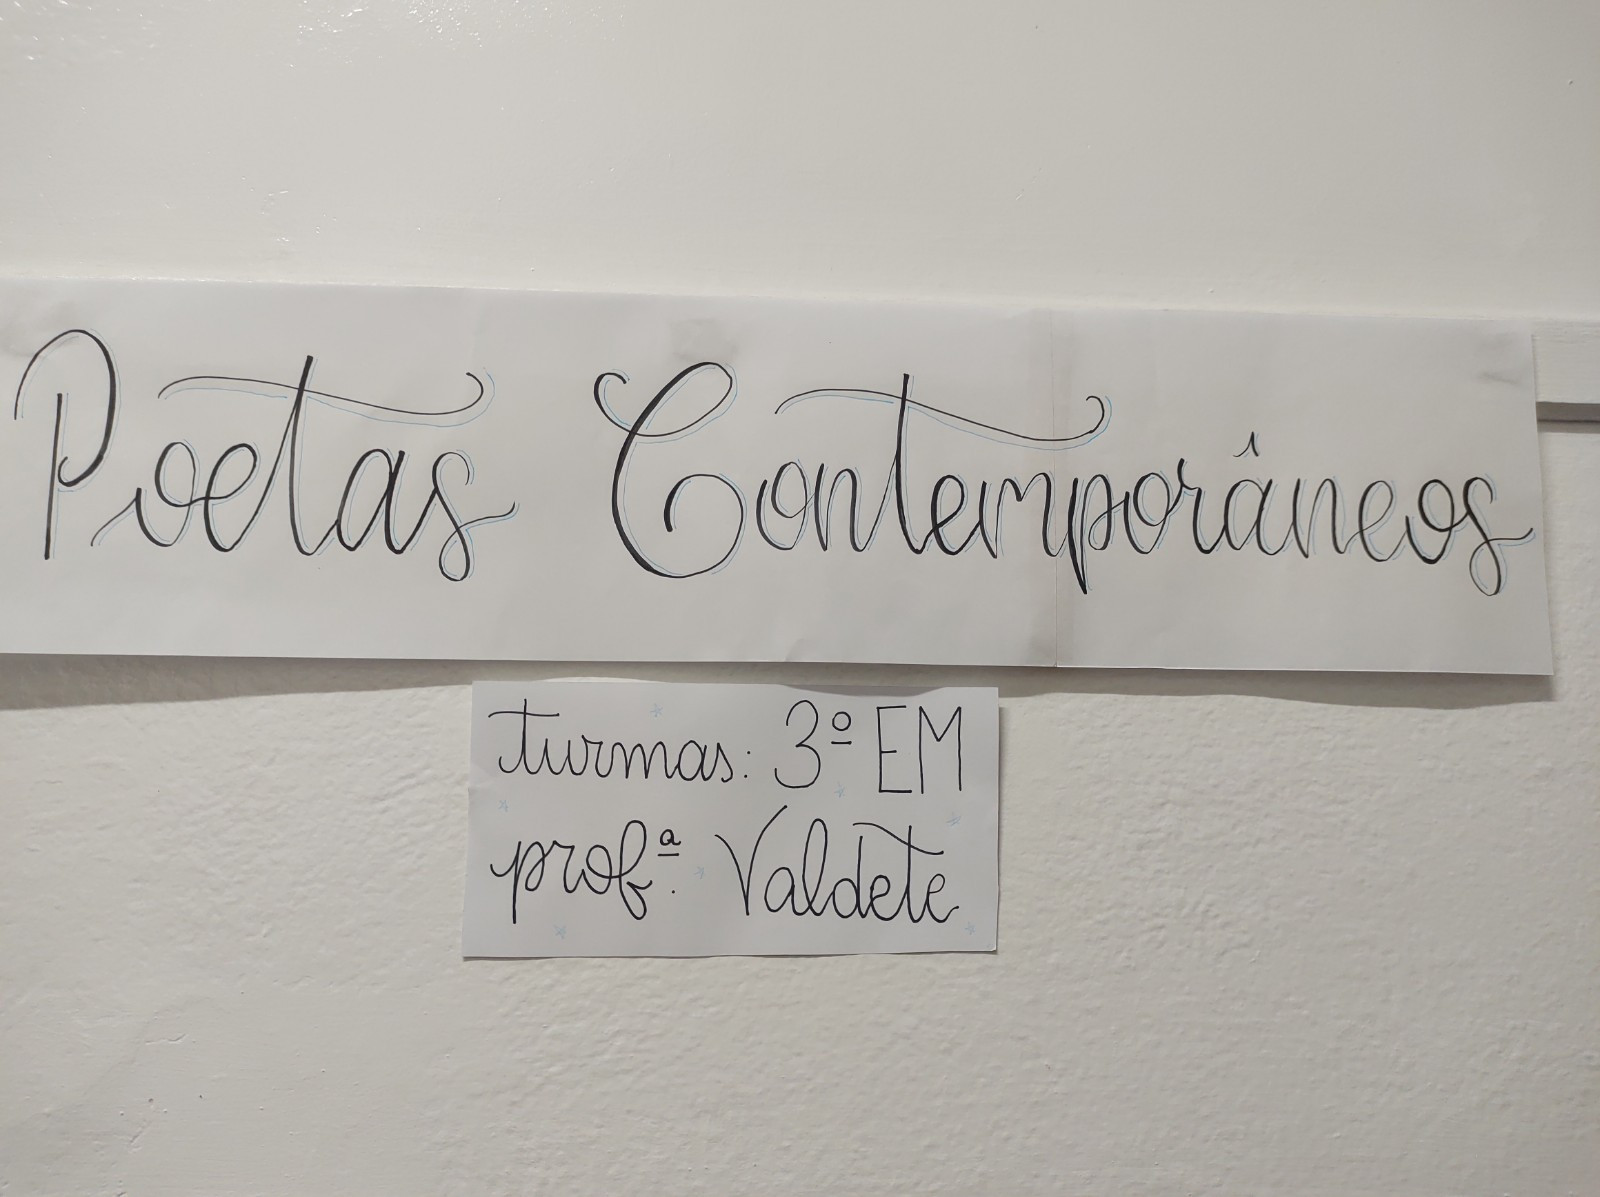 Poetas Contemporâneos
turmas: 3º EM
profª. Valdete